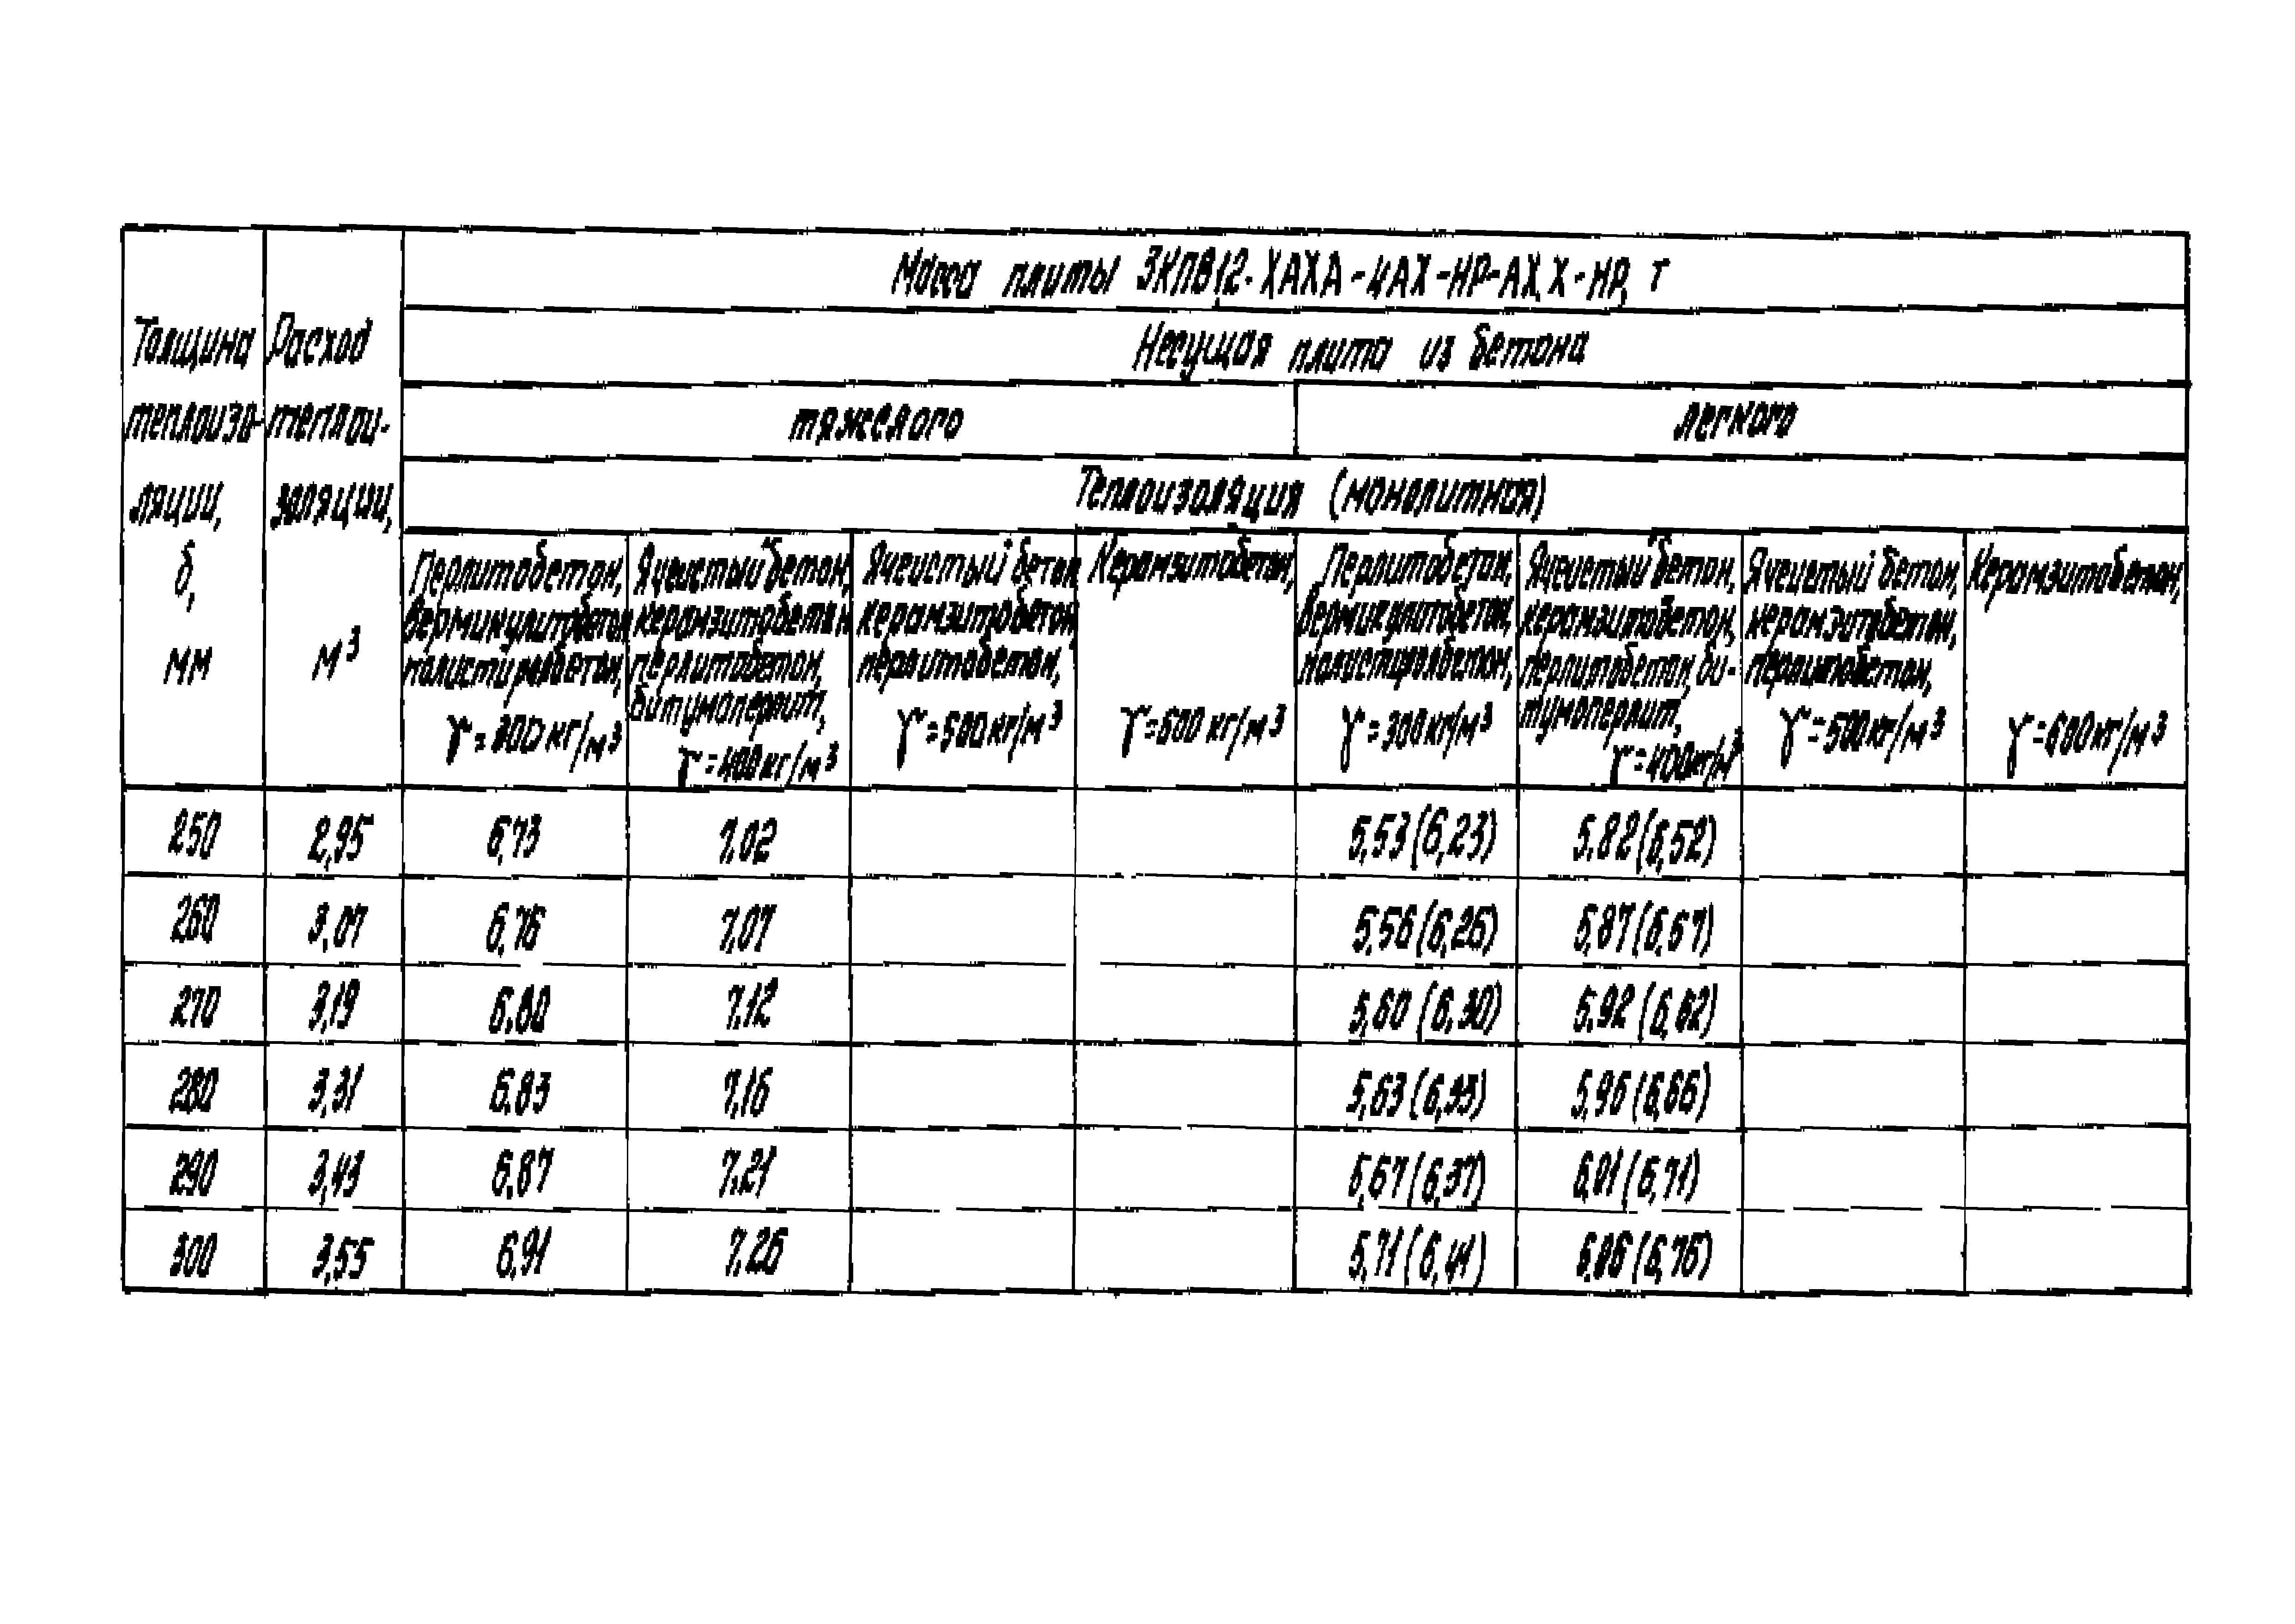 Масса плиты 3КПВ12-ХАХА-4АХ-НР-АХ,Х-НР, т
Несущая плита из бетона
тяжелого легкого
Теплоизоляция (монолитная)
Толщина
теплоизо-
ляции,
δ,
мм
Расход
теплои-
золяции,
м³
Перлитобетон,
вермикулитобетон
полистиролбетон,
γ=300 кг/м³
Ячеистый бетон,
керамзитобетон
перлитобетон,
битумоперлит,
γ=400 кг/м³
Ячеистый бетон
керамзитобетон,
перлитобетон,
γ=500 кг/м³
Керамзитобетон,
γ=600 кг/м³
Перлитобетон,
вермикулитобетон,
полистиролбетон,
γ=300 кг/м³
Ячеистый бетон,
керамзитобетон,
перлитобетон, би-
тумоперлит,
γ=400 кг/м³
Ячеистый бетон,
керамзитобетон,
перлитобетон,
γ=500 кг/м³
Керамзитобетон,
γ=600 кг/м³
250 2,95 6,73 7,02 5,53 (6,23) 5,82 (6,52)
260 3,07 6,76 7,07 5,56 (6,26) 5,87 (6,57)
270 3,19 6,80 7,12 5,60 (6,30) 5,92 (6,62)
280 3,31 6,83 7,16 5,63 (6,33) 5,96 (6,66)
290 3,43 6,87 7,21 5,67 (6,37) 6,01 (6,71)
300 3,55 6,91 7,26 5,71 (6,41) (6,76)